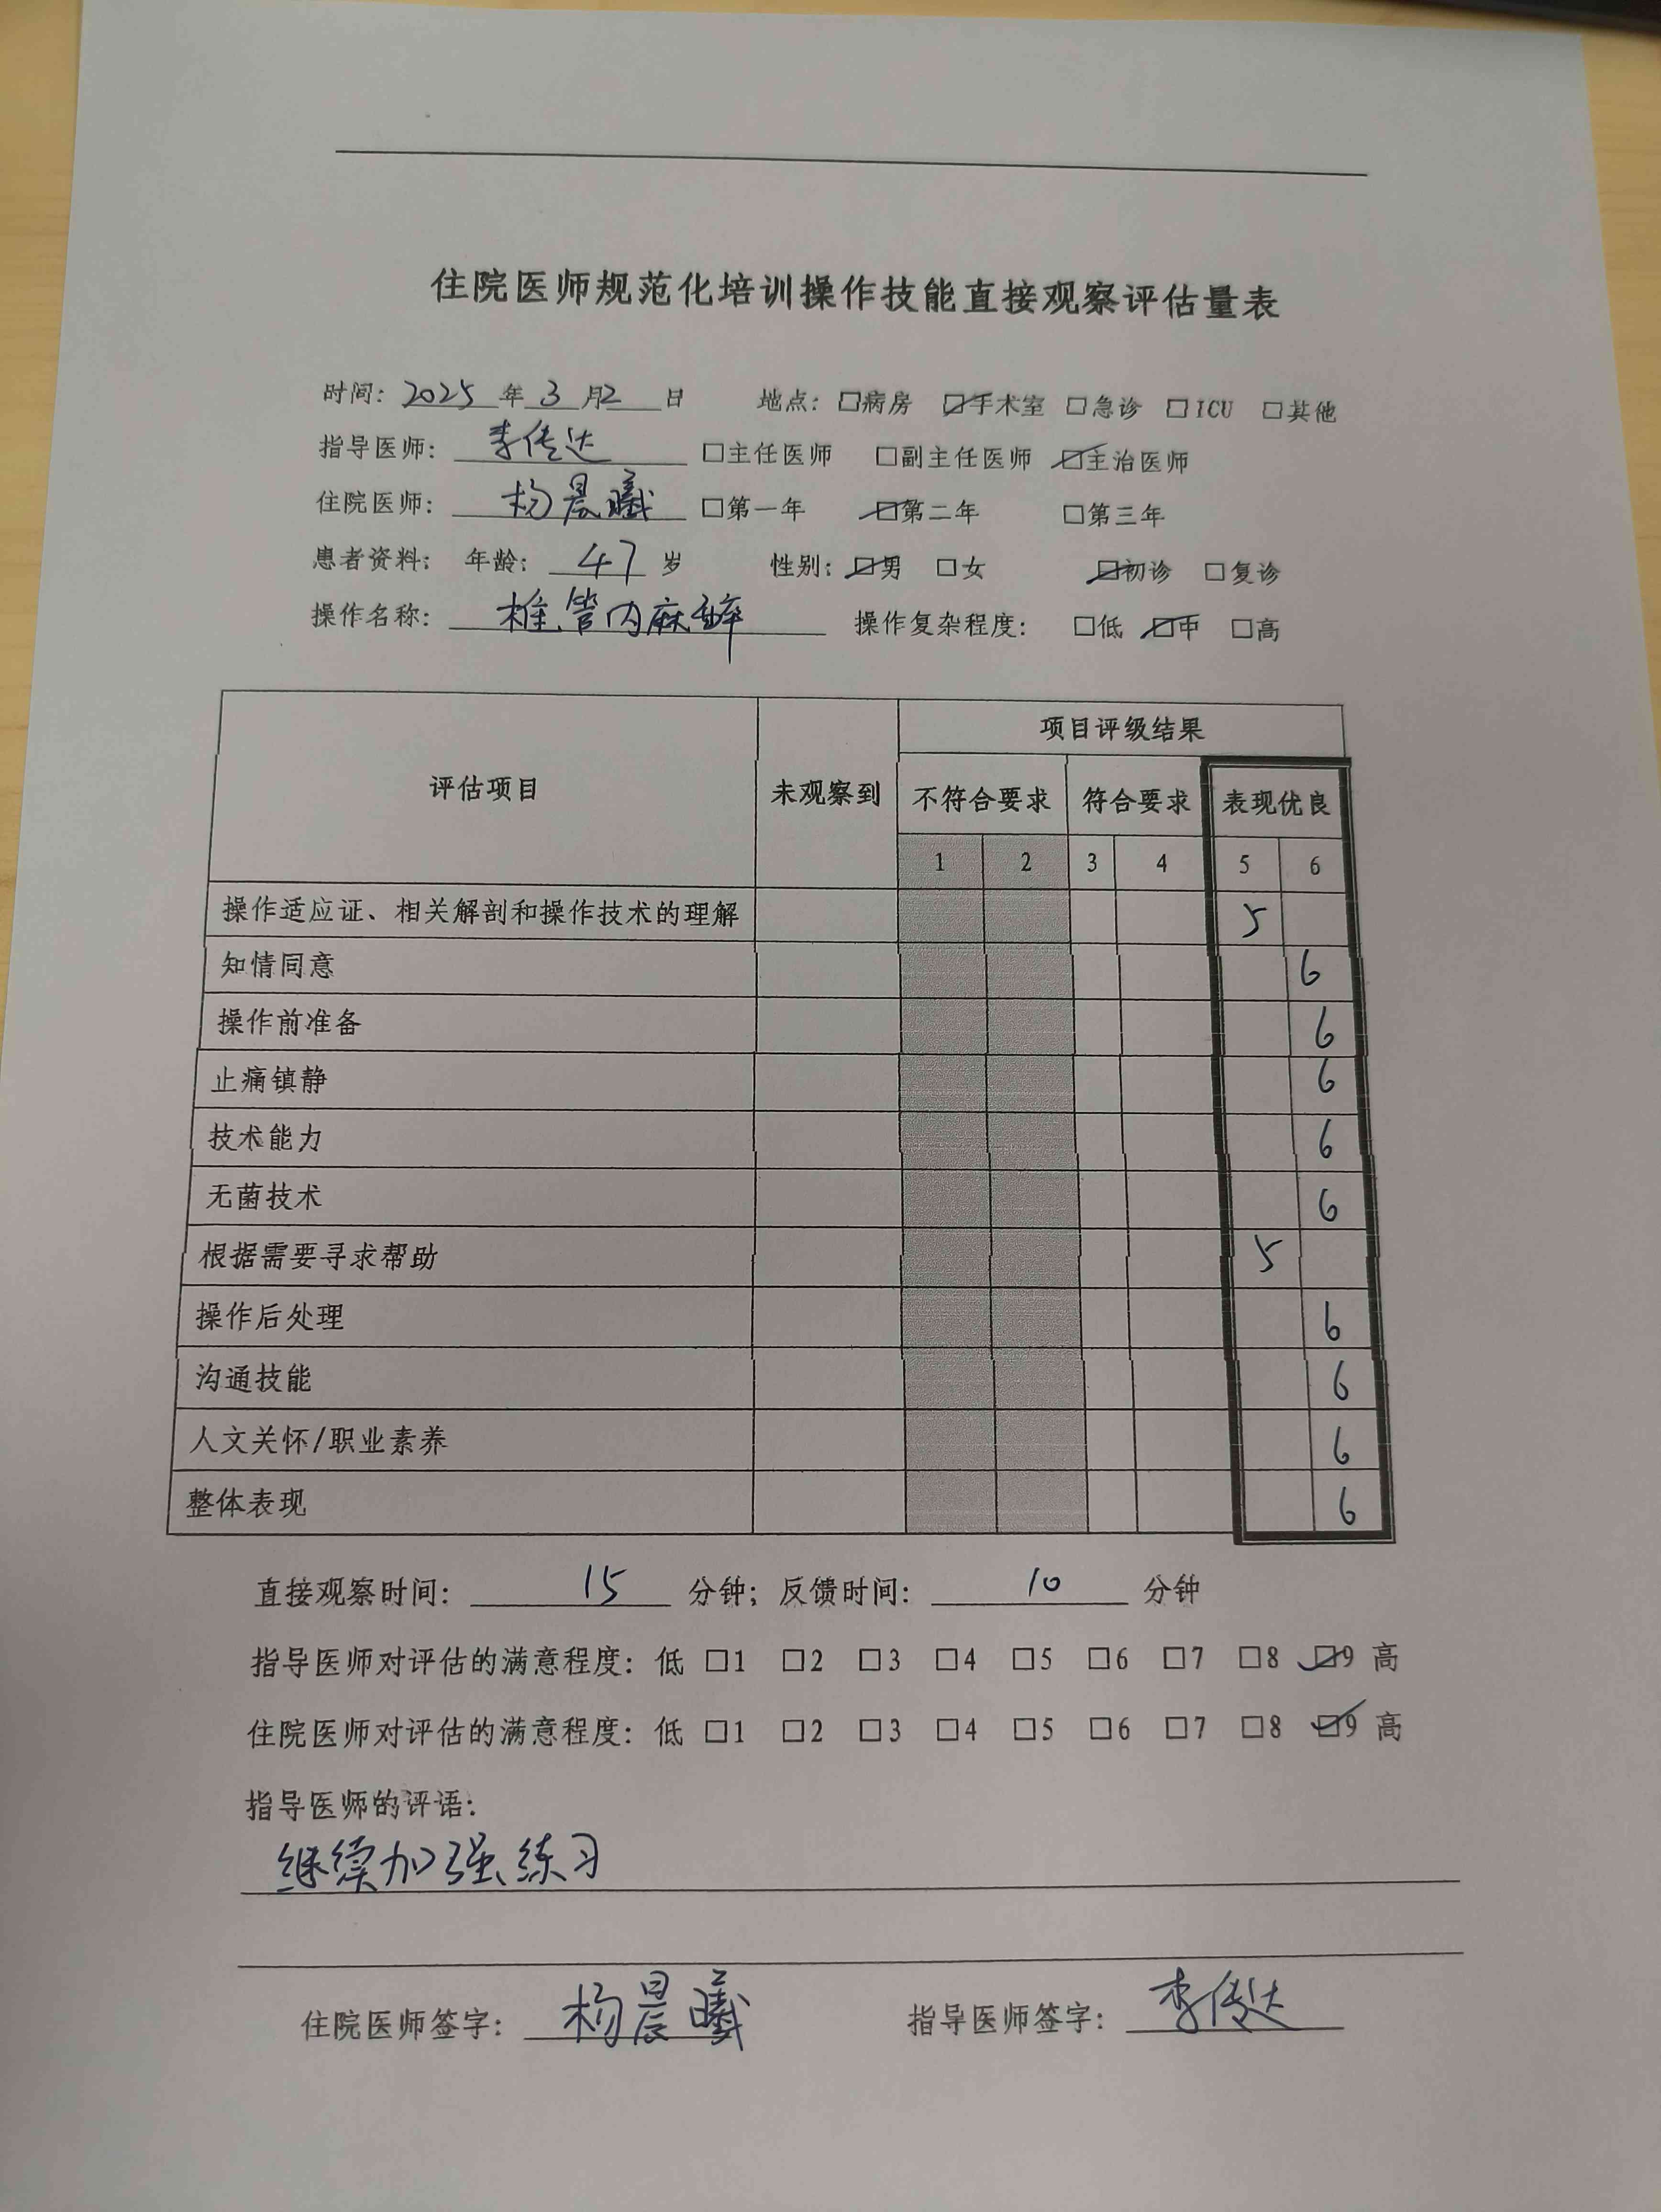 住院医师规范化培训操作技能直接观察评估量表
时间: 2025 年 3 月 2 日 地点: □病房 ☑手术室 □急诊 □ICU □其他
指导医师: 李传达 □主任医师 □副主任医师 ☑主治医师
住院医师: 杨晨曦 □第一年 ☑第二年 □第三年
患者资料: 年龄: 47 岁 性别: ☑男 □女 ☑初诊 □复诊
操作名称: 椎管内麻醉 操作复杂程度: □低 ☑中 □高
项目评级结果
评估项目 未观察到 不符合要求 符合要求 表现优良
1 2 3 4 5 6
操作适应证、相关解剖和操作技术的理解 5
知情同意 6
操作前准备 6
止痛镇静 6
技术能力 6
无菌技术 6
根据需要寻求帮助 5
操作后处理 6
沟通技能 6
人文关怀/职业素养 6
整体表现 6
直接观察时间: 15 分钟; 反馈时间: 10 分钟
指导医师对评估的满意程度: 低 □1 □2 □3 □4 □5 □6 □7 □8 ☑9 高
住院医师对评估的满意程度: 低 □1 □2 □3 □4 □5 □6 □7 □8 ☑9 高
指导医师的评语:
继续加强练习
住院医师签字: 杨晨曦 指导医师签字: 李传达